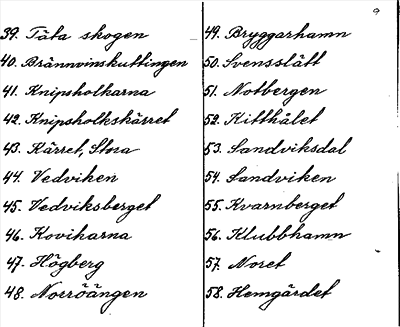 39. Täta skogen
40. Brännvinskuttingen
41. Knipsholkarna
42. Knipsholkskärret
43. Kärret, Stora
44. Vedviken
45. Vedviksberget
46. Kovikarna
47. Högberg
48. Norröängen
49. Bryggarhamn
50. Svensslätt
51. Notbergen
52. Kitthålet
53. Sandviksdal
54. Sandviken
55. Kvarnberget
56. Klubbhamn
57. Noret
58. Hemgärdet